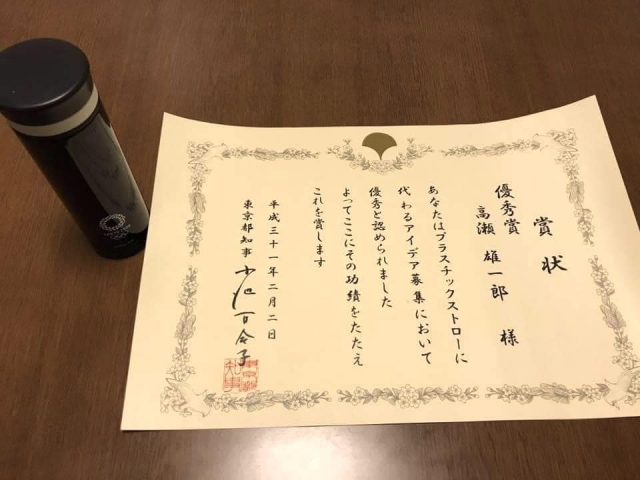 賞状
優秀賞
高瀬 雄一郎 様
あなたはプラスチックストローに
代わるアイデア募集において
優秀と認められました
よってここにその功績をたたえ
これを賞します
平成三十一年二月二日
東京都知事 小池百合子